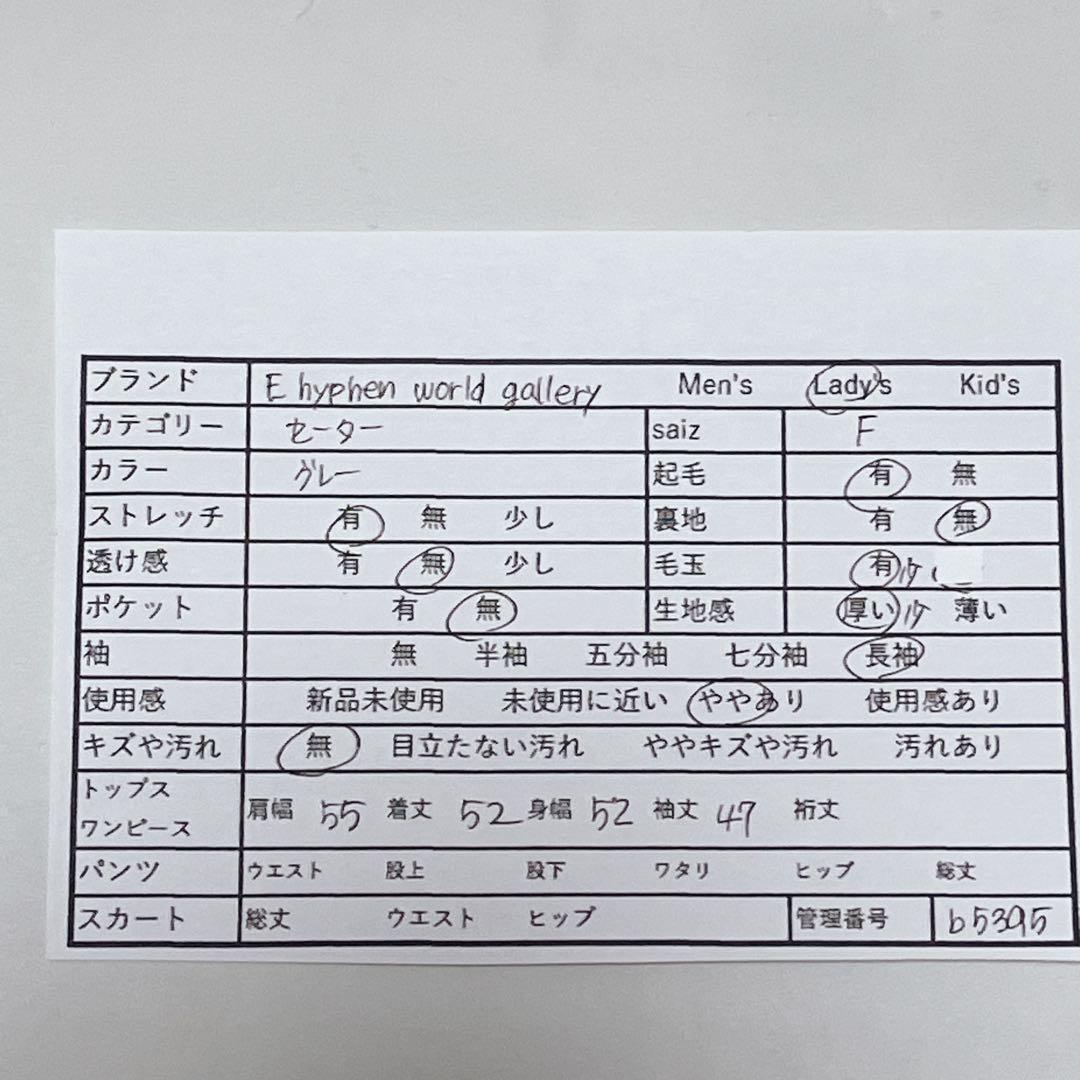 ブランド E hyphen world gallery Men's Lady's Kid's
カテゴリー セーター saiz F
カラー グレー 起毛 有 無
ストレッチ 有 無 少し 裏地 有 無
透け感 有 無 少し 毛玉 有 少
ポケット 有 無 生地感 厚い 少 薄い
袖 無 半袖 五分袖 七分袖 長袖
使用感 新品未使用 未使用に近い ややあり 使用感あり
キズや汚れ 無 目立たない汚れ ややキズや汚れ 汚れあり
トップス
ワンピース 肩幅 55 着丈 52 身幅 52 袖丈 47 裄丈
パンツ ウエスト 股上 股下 ワタリ ヒップ 総丈
スカート 総丈 ウエスト ヒップ 管理番号 b5395